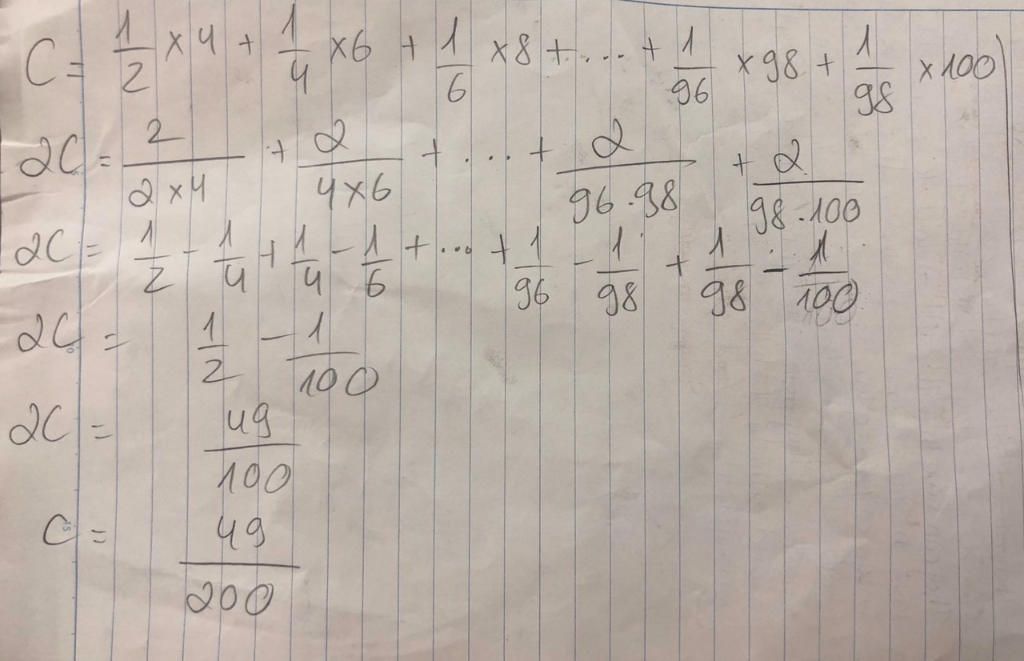 C = 1/2 × 4 + 1/4 × 6 + 1/6 × 8 + ... + 1/96 × 98 + 1/98 × 100
2C = 2/(2 × 4) + 2/(4 × 6) + ... + 2/(96 . 98) + 2/(98 . 100)
2C = 1/2 - 1/4 + 1/4 - 1/6 + ... + 1/96 - 1/98 + 1/98 - 1/100
2C = 1/2 - 1/100
2C = 49/100
C = 49/200